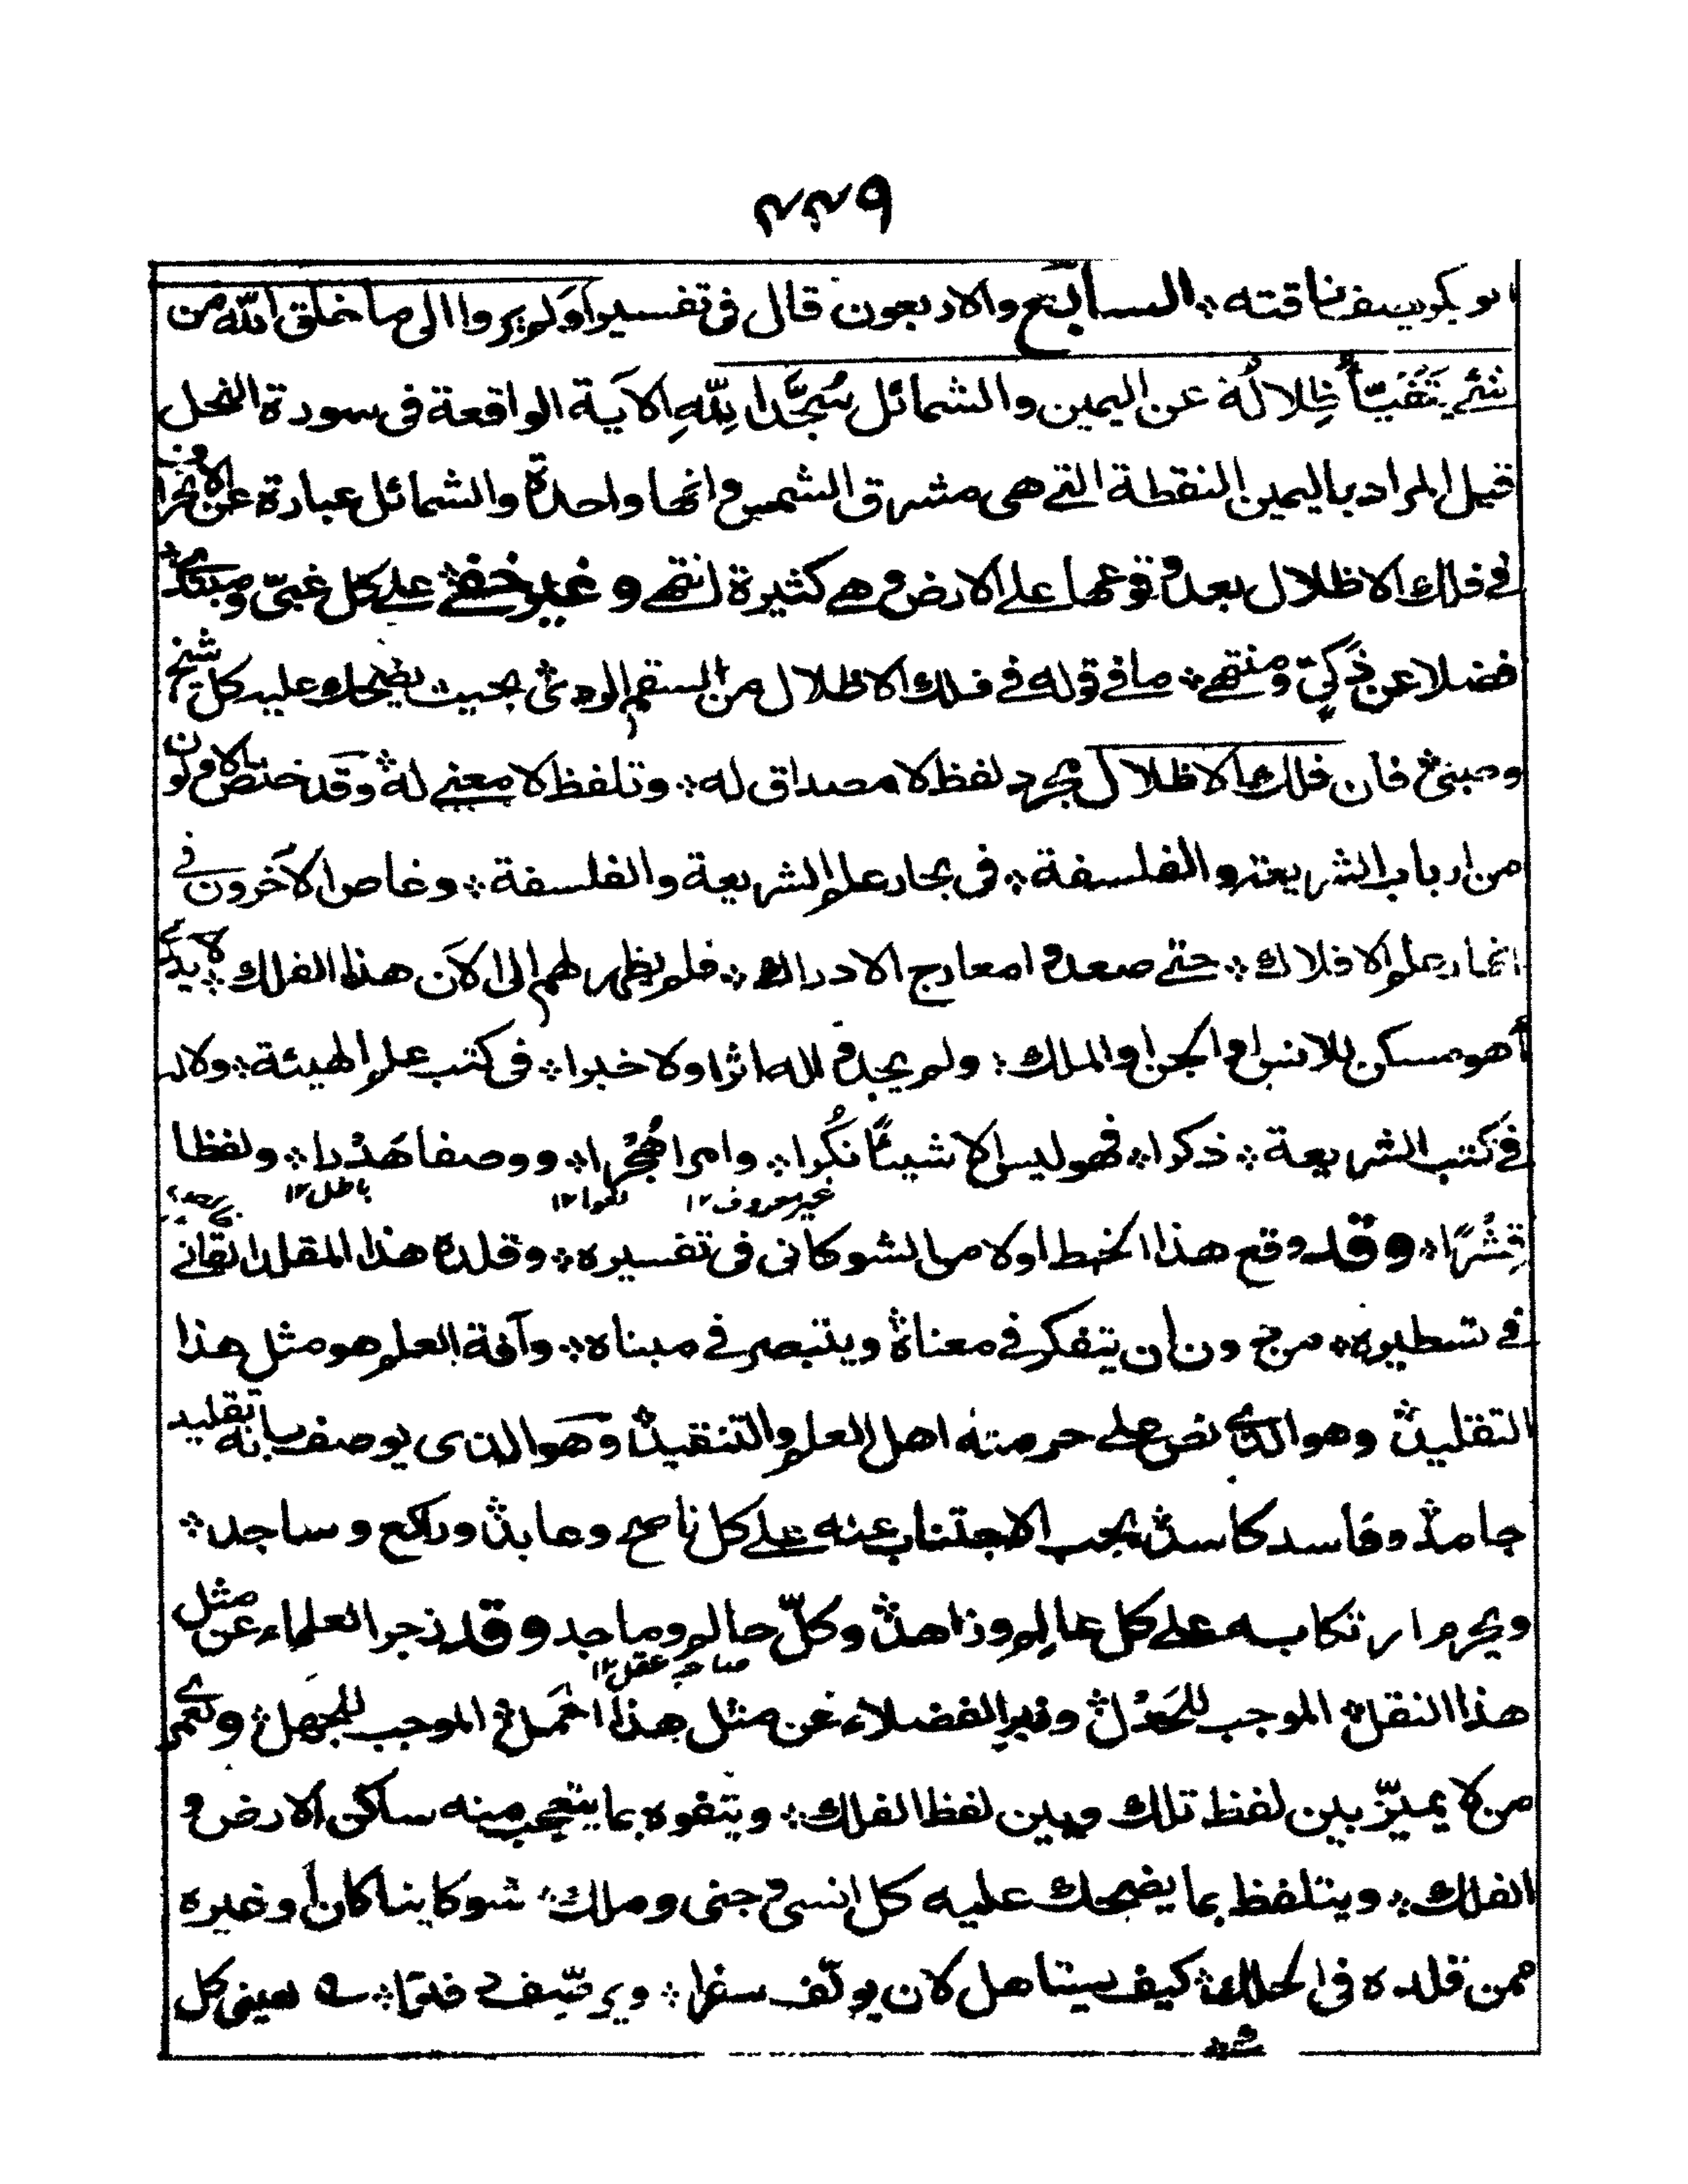 ۲۲۹
ناقته ⁘ السابع والاربعون قال فى تفسير أولم يروا الى ما خلق الله من
شئ يَتَفَيَّأُ ظِلالُهُ عن اليمين والشمائل سُجَّدا لِلّهِ الآية الواقعة فى سورة النحل
قيل المراد باليمين النقطة التے هى مشرق الشمس وانها واحدة والشمائل عبارة عن الانحراف
فے فلك الاظلال بعد وقوعها علے الارض وهے كثيرة انتهے وغير خفے علے كل غبىّ ومبتدئ
فضلا عن ذكىّ ومنتهے ⁘ ما فے قوله فے فلك الاظلال من السقم الردئ بحيث يضحك عليه كل شيخ
وصبىّ فان فلك الاظلال مجرد لفظ لا مصداق له ⁘ وتلفظ لا معنے له ⁘ وقد خاض الاولون
من ارباب الشريعة والفلسفة ⁘ فى بحار علم الشريعة والفلسفة ⁘ وغاص الآخرون فى
انهار علم الافلاك ⁘ حتے صعدوا معارج الادراك ⁘ فلم يظهر لهم الى الآن هذا الفلك ⁘ لا يدرے
أهو مسكن للانس او الجن او الملك ⁘ ولم يجدوا له اثرا ولا خبرا ⁘ فى كتب علم الهيئة ⁘ ولا
فے كتب الشريعة ⁘ ذكرا ⁘ فهو ليس الا شيئًا نُكُرا ⁘ وامرا هُجْرا ⁘ ووصفا هَدْرا ⁘ ولفظا
غير معروف ١٢ لغوا ١٢ باطل ١٢
قِشْرًا ⁘ وقد وقع هذا الخبط اولا من الشوكانى فى تفسيره ⁘ وقلده هذا المقلد القانے
فے تسطيره ⁘ من دون ان يتفكر فے معناه ⁘ ويتبصر فے مبناه ⁘ وآفة العلم هو مثل هذا
التقليد ⁘ وهو الذى نص علے حرمته اهل العلم والتنقيد ⁘ وهو الذى يوصف بانه تقليد
جامد ⁘ وفاسد كاسد ⁘ يجب الاجتناب عنه علے كل ناصح وعابد ⁘ وراكع وساجد ⁘
ويحرم ارتكابه علے كل عالم وزاهد ⁘ وكلّ حالم وماجد وقد زجر العلماء عن مثل
صاحب عقل ١٢
هذا النقل ⁘ الموجب للخذل ⁘ وزبر الفضلاء عن مثل هذا العمل ⁘ الموجب للجهل ⁘ ولعمرے
من لا يميّز بين لفظ تلك وبين لفظ الفلك ⁘ ويتفوه بما يتعجب منه ساكن الارض و
الفلك ⁘ ويتلفظ بما يضحك عليه كل انسى وجنى وملك ⁘ شوكانيا كان أو غيره
ممن قلده فى الحلك ⁘ كيف يستاهل لان يولّف سفرا ⁘ ويرصّف دفترا ⁘